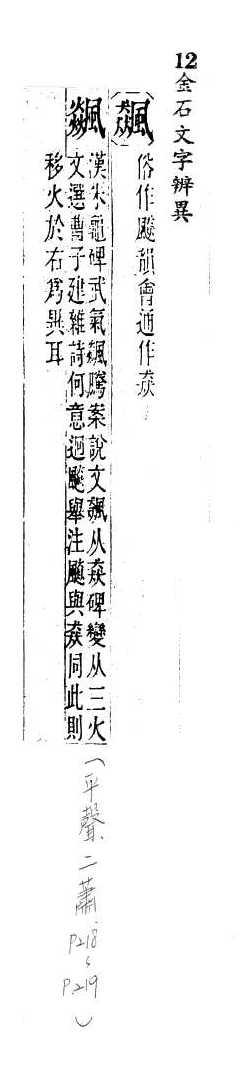 12金石文字辨異
〔飆〕俗作飈韻會通作猋
漢朱龜碑武氣飆騰案說文飆从猋碑變从三火
文選曹子建雜詩何意迴飈舉注飈與猋同此則
移火於右爲異耳
（平聲、二蕭 P.218、P.219）